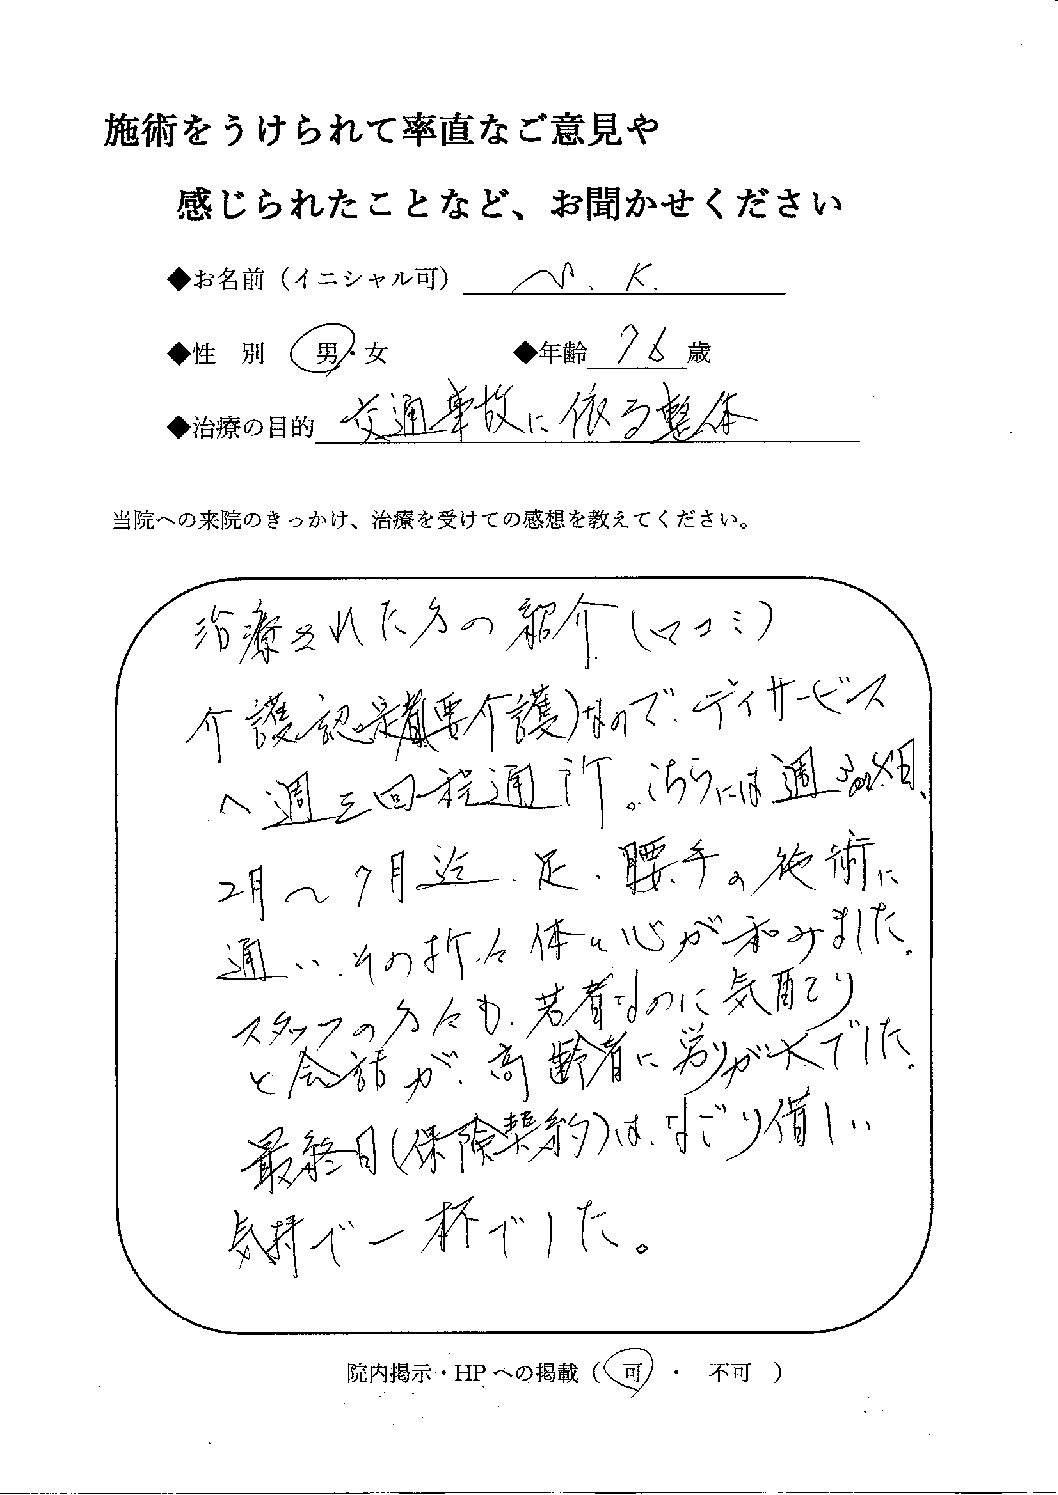 施術をうけられて率直なご意見や
感じられたことなど、お聞かせください
◆お名前（イニシャル可） . K.
◆性 別 男・女 ◆年齢 76 歳
◆治療の目的 交通事故に依る整体
当院への来院のきっかけ、治療を受けての感想を教えてください。
治療された方の紹介（口コミ）
介護認定者（要介護）なので、デイサービス
へ週三回程通所。こちらには週
2月〜7月迄、足、腰、手の施術に
通い、その折々体と心が和みました。
スタッフの方々も、若者なのに気配り
と会話が、高齢者に労りが大でした。
最終日（保険契約）は、なごり惜しい
気持で一杯でした。
院内掲示・HPへの掲載（ 可 ・ 不可 ）